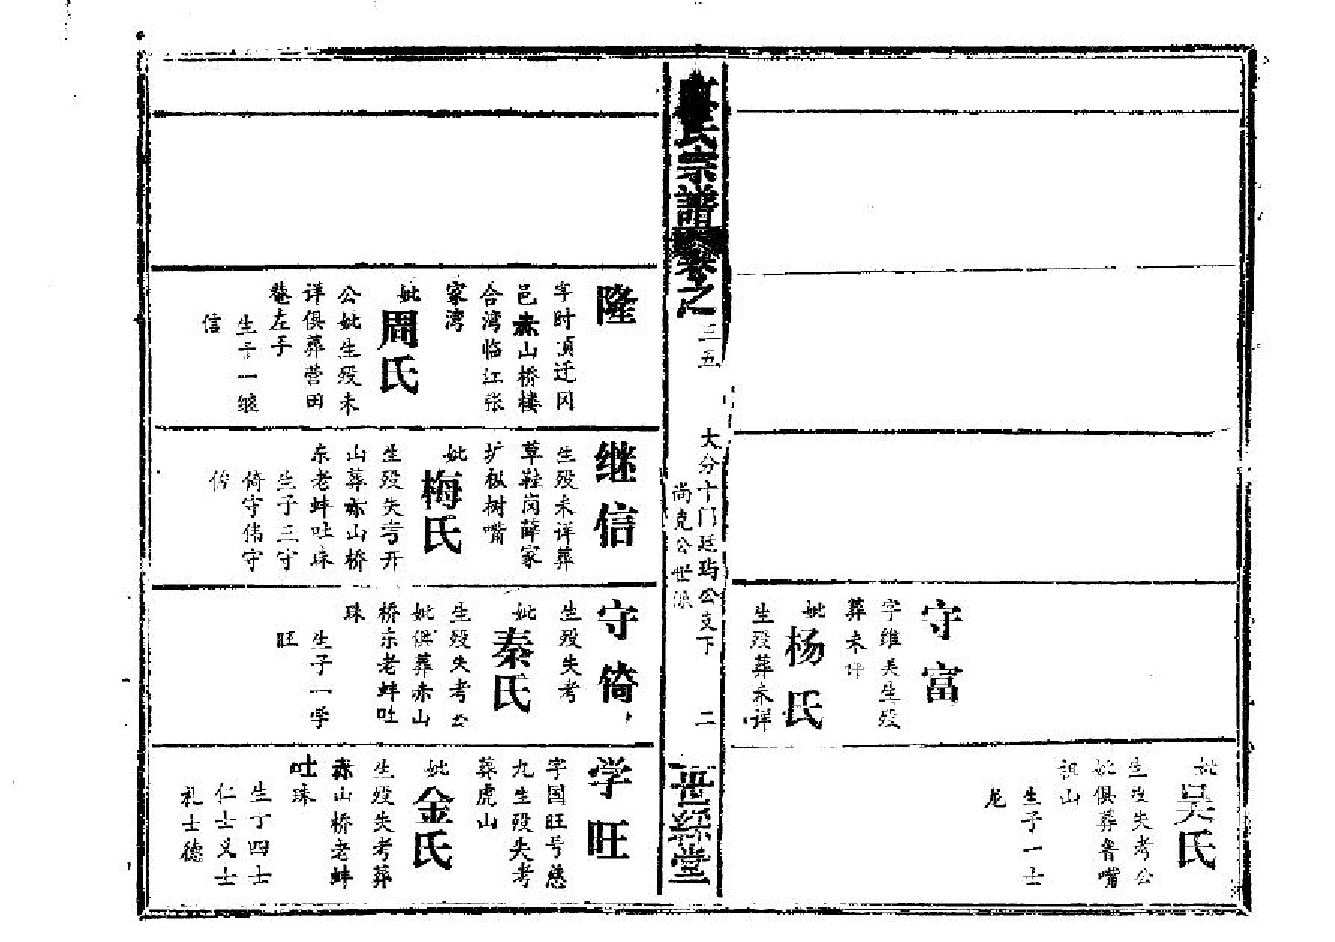 妣
吴氏
生殁失考公
妣俱葬鲁嘴
山
生子一士
龙
守富
字维美生殁
葬未详
妣
杨氏
生殁葬未详
氏宗谱卷之
三五
大分十门廷玙公支下
尚克公世派
二
世綵堂
隆
年时顶迁冈
邑赤山桥楼
合湾临江张
家湾
妣
周氏
公妣生殁未
详俱葬营田
垄左手
生子一继
信
继信
生殁未详葬
草鞋岗薛家
扩枞树嘴
妣
梅氏
生殁失考开
山葬赤山桥
东老蚌吐珠
生子三守
倚守伟守
守倚
生殁失考
妣
秦氏
生殁失考公
妣俱葬赤山
桥东老蚌吐
珠
生子一学
旺
学旺
字国旺号慈
九生殁失考
葬虎山
妣
金氏
生殁失考葬
赤山桥老蚌
吐珠
生丁四士
仁士义士
礼士德